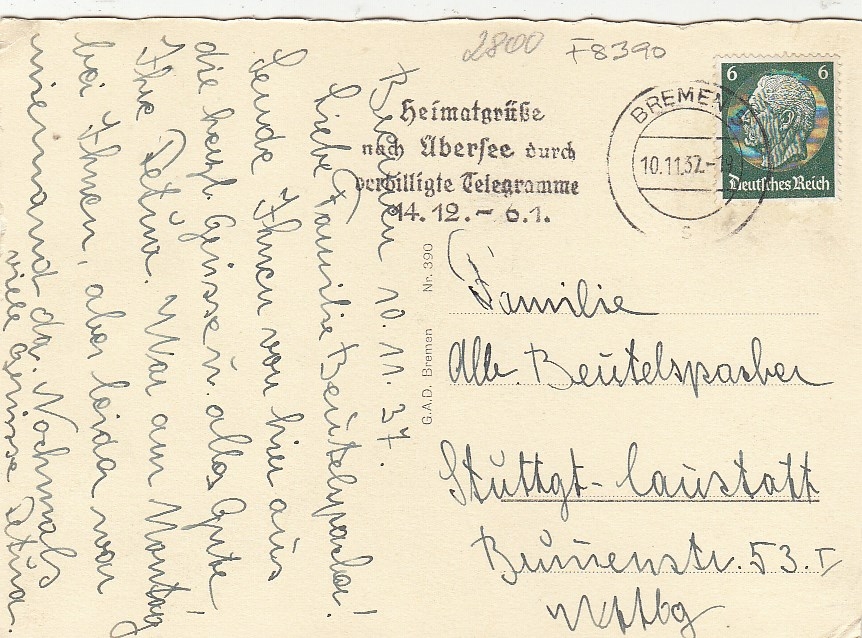 2800 F8390
Heimatgrüße
nach Übersee durch
verbilligte Telegramme
14.12.– 6.1.
BREMEN
10.11.37.-19
s
6 6
Deutsches Reich
Bremen 10.11.37.
Liebe Familie Beutelspacher!
Sende Ihnen von hier aus
die herzl. Grüsse u. alles Gute
Ihre Petina. War am Montag
bei Ihnen, aber leider war
niemand da. Nochmals
viele Grüsse
G.A.D. Bremen Nr. 390
Familie
Beutelspacher
Stuttgt-Cannstatt
53. I
Wttbg.